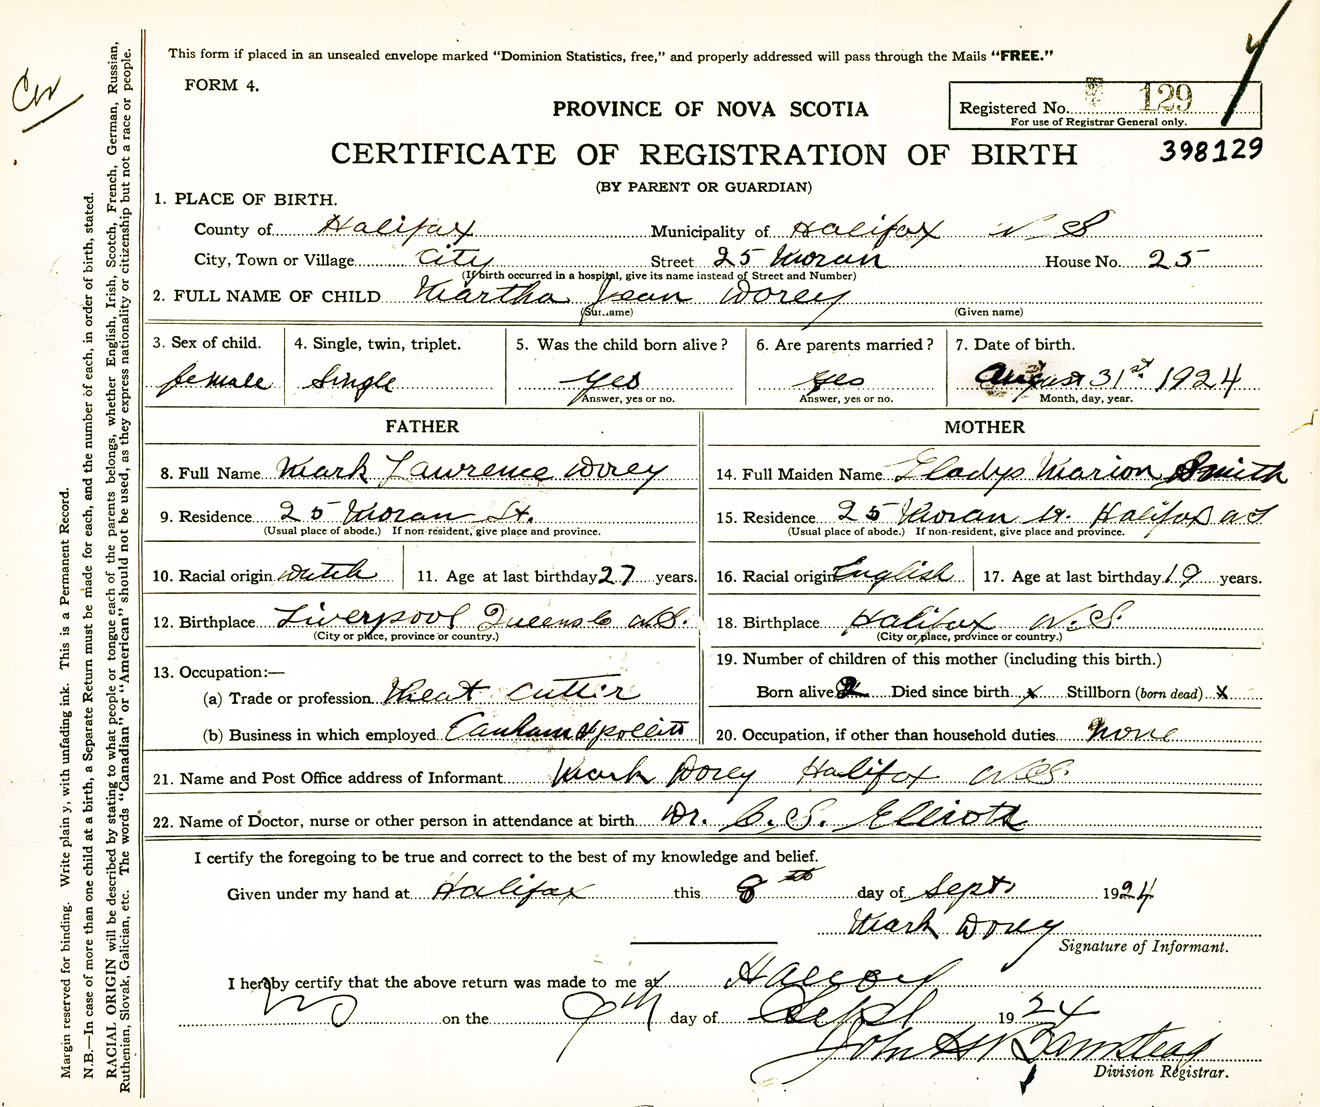 This form if placed in an unsealed envelope marked “Dominion Statistics, free,” and properly addressed will pass through the Mails “FREE.”
FORM 4.
PROVINCE OF NOVA SCOTIA
Registered No. 129
For use of Registrar General only.
CERTIFICATE OF REGISTRATION OF BIRTH
398129
(BY PARENT OR GUARDIAN)
1. PLACE OF BIRTH.
County of Halifax Municipality of Halifax N S
City, Town or Village City Street 25 Moran House No. 25
(If birth occurred in a hospital, give its name instead of Street and Number)
2. FULL NAME OF CHILD Martha Jean Dorey
(Surname) (Given name)
3. Sex of child. 4. Single, twin, triplet. 5. Was the child born alive? 6. Are parents married? 7. Date of birth.
female Single yes yes August 31st 1924
Answer, yes or no. Answer, yes or no. Month, day, year.
FATHER MOTHER
8. Full Name Mark Lawrence Dorey 14. Full Maiden Name Gladys Marion Smith
9. Residence 25 Moran St. 15. Residence 25 Moran St. Halifax N S
(Usual place of abode.) If non-resident, give place and province. (Usual place of abode.) If non-resident, give place and province.
10. Racial origin Dutch 11. Age at last birthday 27 years. 16. Racial origin English 17. Age at last birthday 19 years.
12. Birthplace Liverpool Queens Co N.S. 18. Birthplace Halifax N.S.
(City or place, province or country.) (City or place, province or country.)
13. Occupation:— 19. Number of children of this mother (including this birth.)
(a) Trade or profession Meat Cutter Born alive 2 Died since birth x Stillborn (born dead) x
(b) Business in which employed 20. Occupation, if other than household duties None
21. Name and Post Office address of Informant Mark Dorey Halifax N.S.
22. Name of Doctor, nurse or other person in attendance at birth Dr. C. S. Elliott
I certify the foregoing to be true and correct to the best of my knowledge and belief.
Given under my hand at Halifax this 8th day of Sept 1924
Mark Dorey
Signature of Informant.
I hereby certify that the above return was made to me at
NS on the 9th day of Sept 1924
John H
Division Registrar.
Margin reserved for binding. Write plainly, with unfading ink. This is a Permanent Record.
N.B.—In case of more than one child at a birth, a Separate Return must be made for each, and the number of each, in order of birth, stated.
RACIAL ORIGIN will be described by stating to what people or tongue each of the parents belongs, whether English, Irish, Scotch, French, German, Russian,
Ruthenian, Slovak, Galician, etc. The words “Canadian” or “American” should not be used, as they express nationality or citizenship but not a race or people.